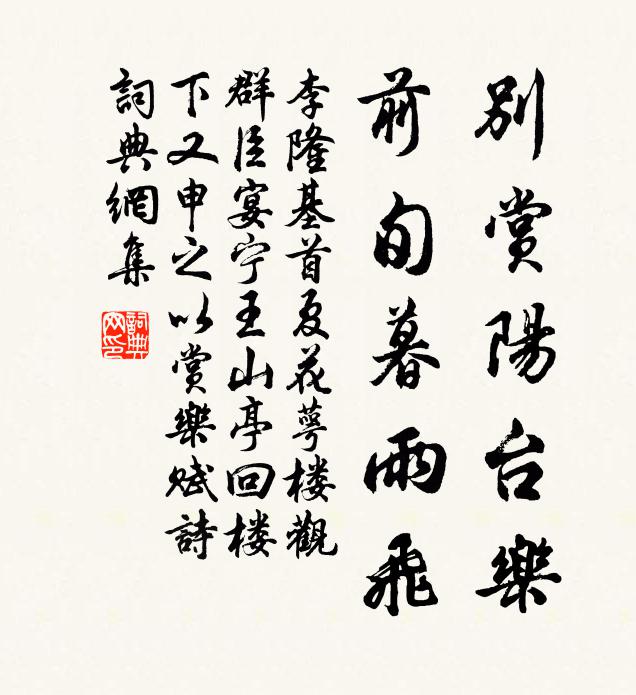 別賞陽台樂
前旬暮雨飛
李隆基首夏花萼楼觀
群臣宴宁王山亭回楼
下又申之以賞樂赋詩
詞典網集
詞典
网印